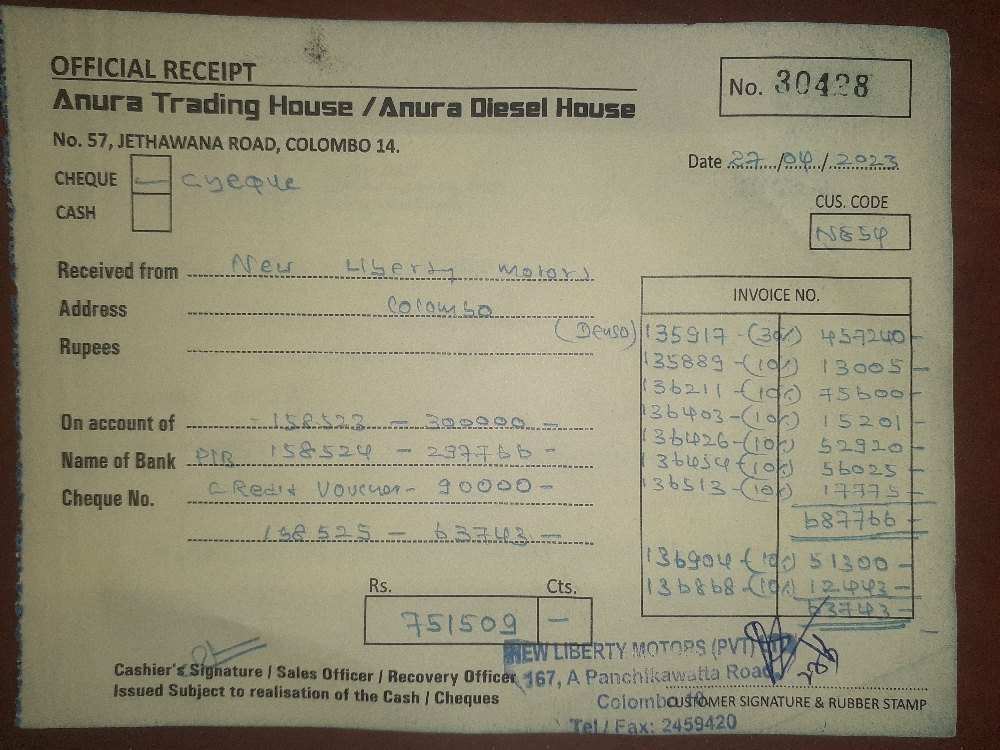 OFFICIAL RECEIPT
No. 30428
Anura Trading House / Anura Diesel House
No. 57, JETHAWANA ROAD, COLOMBO 14.
Date 27/04/2023
CHEQUE — cheque
CASH
CUS. CODE
N854
Received from New Liberty Motors
Address Colombo
Rupees
INVOICE NO.
(Denso) 135917 - (30%) 457240 -
135889 - (10%) 13005 -
136211 - (10%) 75600 -
136403 - (10%) 15201 -
136426 - (10%) 52920 -
136454 - (10%) 56025 -
136513 - (10%) 17775 -
687766 -
136904 - (10%) 51300 -
136868 - (10%) 12443 -
63743 -
On account of - 158523 - 300000 -
Name of Bank 158524 - 297766 -
Cheque No. Credit Voucher - 90000 -
158525 - 63743 -
Rs. Cts.
751509 -
Cashier's Signature / Sales Officer / Recovery Officer
Issued Subject to realisation of the Cash / Cheques
NEW LIBERTY MOTORS (PVT) LTD
167, A Panchikawatta Road,
Colombo 10.
CUSTOMER SIGNATURE & RUBBER STAMP
Tel / Fax: 2459420